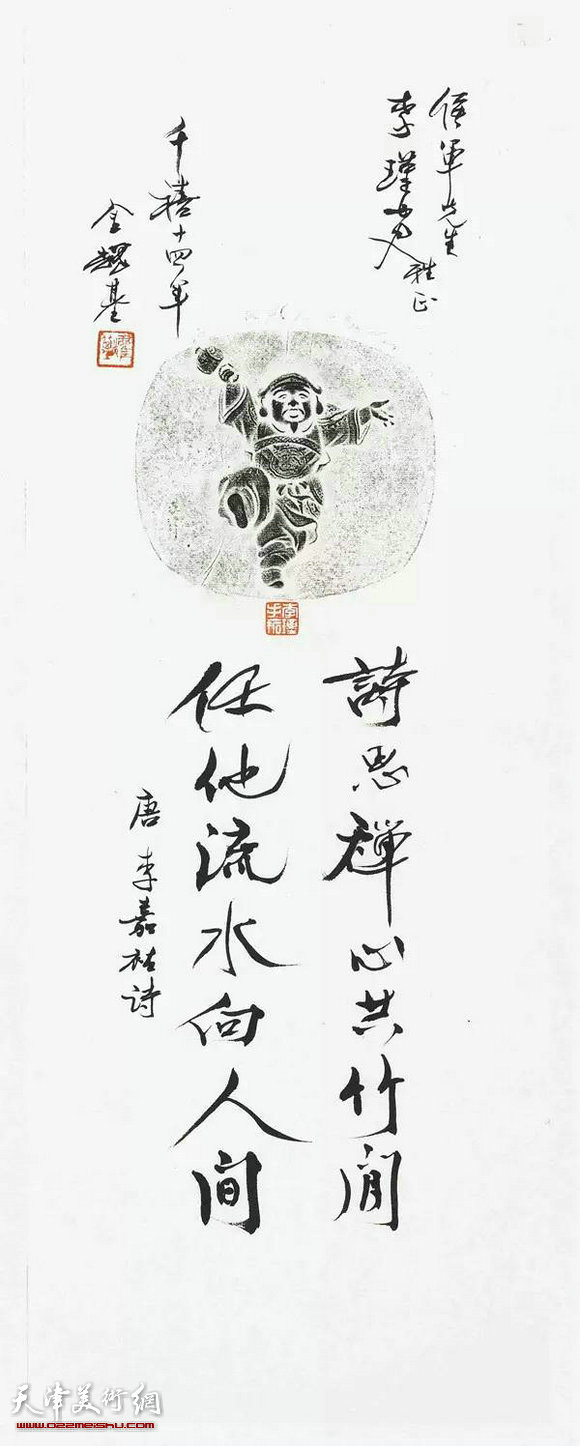 侯軍先生
李瑾
雅正
千禧十四年
金耀基
李瑾手拓
詩思禪心共竹閒
任他流水向人間
唐李嘉祐詩
天津美術網
www.022meishu.com